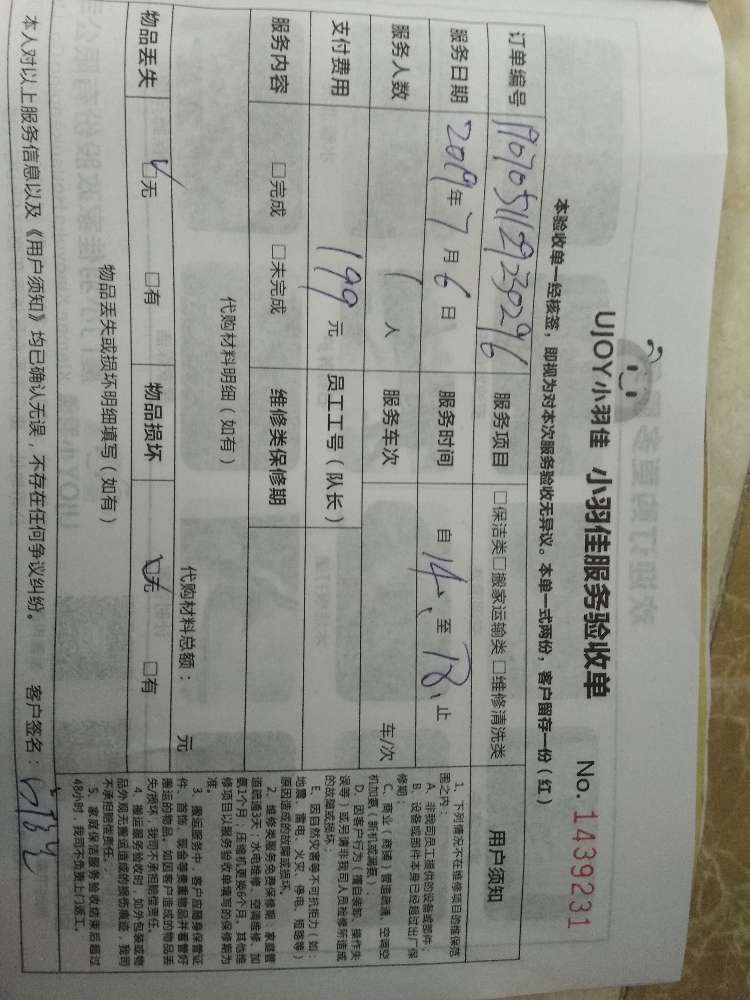 UJOY小羽佳 小羽佳服务验收单 No. 1439231
本验收单一经核签，即视为对本次服务验收无异议。本单一式两份，客户留存一份（红）
订单编号 服务项目 □保洁类□搬家运输类 □维修清洗类
服务日期 2019年7月6日 服务时间 自 14、 至 18、 止
服务人数 1 人 服务车次 车/次
支付费用 199 元 员工工号（队长）
服务内容 □完成 □未完成 维修类保修期
代购材料明细（如有） 代购材料总额： 元
物品丢失 □无 □有 物品损坏 □无 □有
物品丢失或损坏明细填写（如有）
本人对以上服务信息以及《用户须知》均已确认无误，不存在任何争议纠纷。 客户签名：
用户须知
1、下列情况不在维修项目的维保范
围之内：
A、非我司员工提供的设备或部件；
B、设备或部件本身已经超过出厂保
修期；
C、商业（商铺）管道疏通、空调空
机加氨（新机或漏氨）；
D、因客户行为（擅自装卸、操作失
误等）或另请非我司人员检修所造成
的故障或损坏；
E、因自然灾害等不可抗拒力（如：
地震、雷电、火灾、停电、短路等）
原因造成的故障或损坏。
2、维修类服务免费保修期：家庭管
道疏通3天，水电维修、空调维修、加
氨1个月，压缩机更换6个月，其他维
修项目以服务验收单填写的保修期为
准。
3、搬运服务中，客户应随身保管证
件、首饰、现金等贵重物品并看管好
搬运的物品，如因客户造成的物品丢
失/损坏，我司不承担赔偿责任。
4、搬运服务验收时，如外包装或物
品外观无搬运造成的损伤痕迹，我司
不承担赔偿责任。
5、家庭保洁服务验收结束后超过
48小时，我司不负责上门返工。